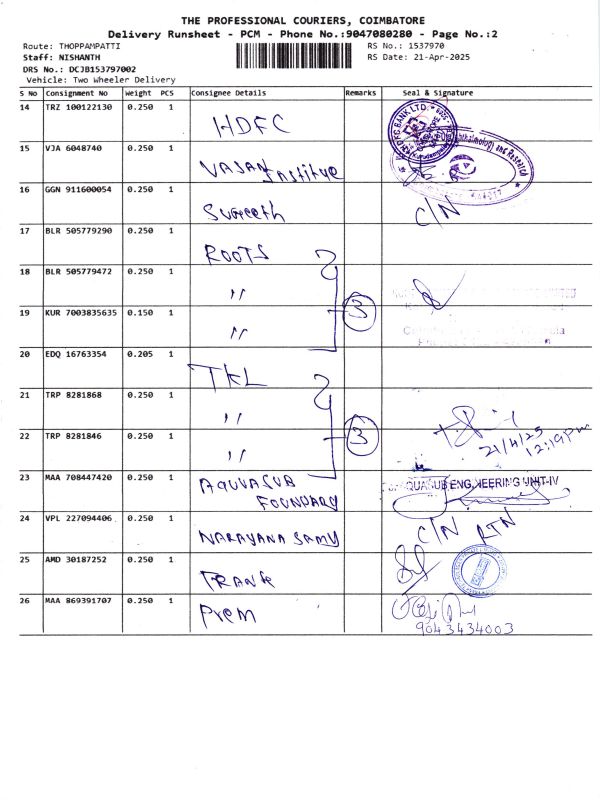 THE PROFESSIONAL COURIERS, COIMBATORE
Delivery Runsheet - PCM - Phone No.:9047080280 - Page No.:2
Route: THOPPAMPATTI
RS No.: 1537970
Staff: NISHANTH
RS Date: 21-Apr-2025
DRS No.: DCJB153797002
Vehicle: Two Wheeler Delivery
S No Consignment No Weight PCS Consignee Details Remarks Seal & Signature
14 TRZ 100122130 0.250 1 HDFC
15 VJA 6048740 0.250 1 VASAN
16 GGN 911600054 0.250 1 C/N
17 BLR 505779290 0.250 1 ROOTS
18 BLR 505779472 0.250 1 "
19 KUR 7003835635 0.150 1 " 3
20 EDQ 16763354 0.205 1 TKL
21 TRP 8281868 0.250 1 "
22 TRP 8281846 0.250 1 " 3 21/4/25 12:19PM
23 MAA 708447420 0.250 1 AQUVASUB FOUNDARY ENGINEERING UNIT-IV
24 VPL 227094406 0.250 1 NARAYANA SAMY C/N RTN
25 AMD 30187252 0.250 1
26 MAA 869391707 0.250 1 Prem 9043434003